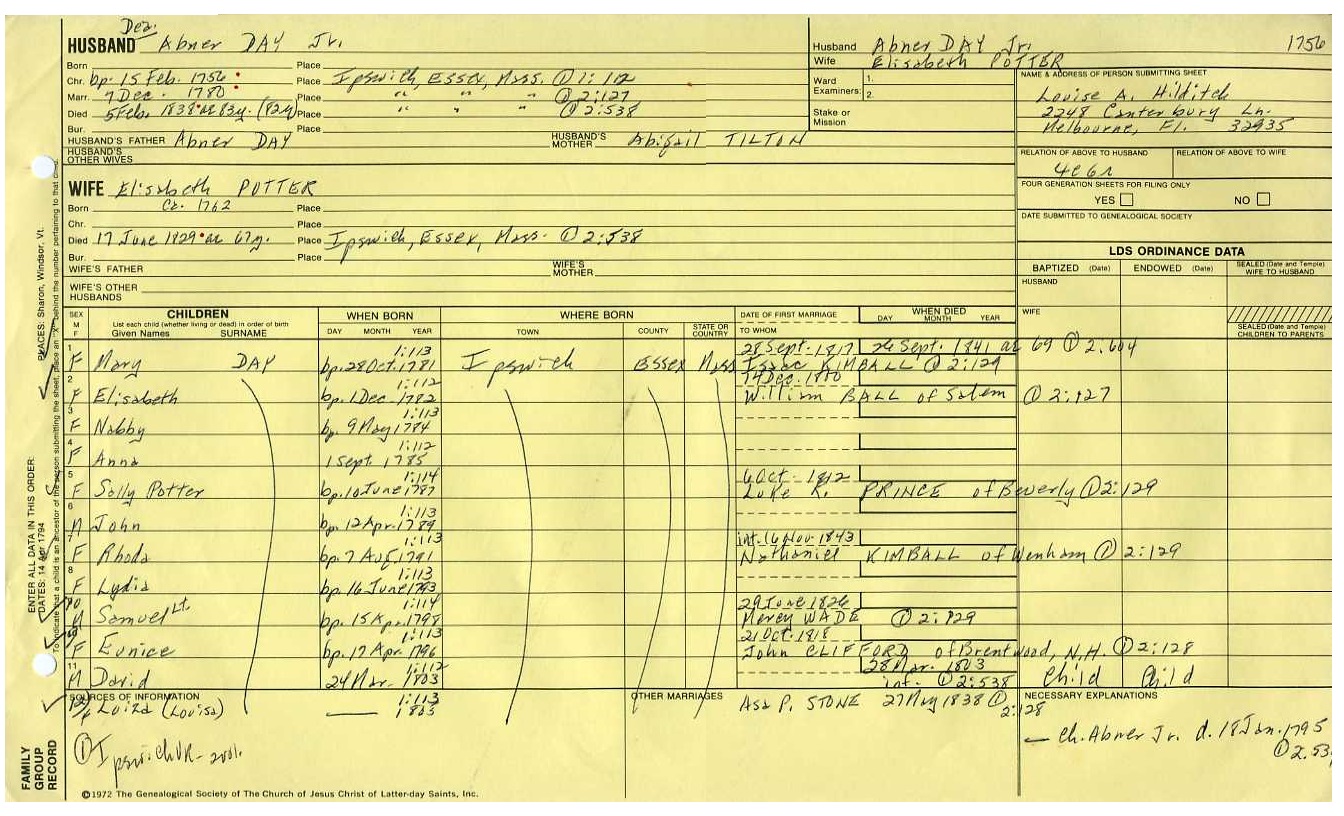 Dea.
HUSBAND Abner DAY Jr.
Born Place
Chr. bp. 15 Feb. 1756 Place Ipswich, Essex, Mass. ① 1:112
Marr. 7 Dec. 1780 Place " " " ① 2:127
Died 5 Feb. 1838 ae 83y. (82y) Place " " " ① 2:538
Bur. Place
HUSBAND'S FATHER Abner DAY HUSBAND'S MOTHER Abigail TILTON
HUSBAND'S OTHER WIVES
WIFE Elisabeth POTTER
Born Ca. 1762 Place
Chr. Place
Died 17 June 1829 ae 67y. Place Ipswich, Essex, Mass. ① 2:538
Bur. Place
WIFE'S FATHER WIFE'S MOTHER
WIFE'S OTHER HUSBANDS
Husband Abner DAY Jr. 1756
Wife Elisabeth POTTER
Ward Examiners: 1. 2.
Stake or Mission
NAME & ADDRESS OF PERSON SUBMITTING SHEET
Louise A. Hilditch
2248 Canterbury Ln.
Melbourne, Fl. 32935
RELATION OF ABOVE TO HUSBAND RELATION OF ABOVE TO WIFE
FOUR GENERATION SHEETS FOR FILING ONLY
YES NO
DATE SUBMITTED TO GENEALOGICAL SOCIETY
LDS ORDINANCE DATA
BAPTIZED (Date) ENDOWED (Date) SEALED (Date and Temple) WIFE TO HUSBAND
HUSBAND
WIFE
SEALED (Date and Temple) CHILDREN TO PARENTS
SEX M F CHILDREN WHEN BORN WHERE BORN DATE OF FIRST MARRIAGE WHEN DIED
List each child (whether living or dead) in order of birth
Given Names SURNAME DAY MONTH YEAR TOWN COUNTY STATE OR COUNTRY TO WHOM DAY MONTH YEAR
1 1:113 28 Sept. 1817 26 Sept. 1841 ae 69 ① 2:604
F Mary DAY bp. 28 Oct. 1781 Ipswich Essex Mass Isaac KIMBALL ① 2:129
2 1:112 14 Dec. 1810
F Elisabeth bp. 1 Dec. 1782 William BALL of Salem ① 2:127
3 1:113
F Nabby bp. 9 May 1784
4 1:112
F Anna 1 Sept. 1785
5 1:114 6 Oct. 1812
F Sally Potter bp. 10 June 1787 Luke R. PRINCE of Beverly ① 2:129
6 1:113
M John bp. 12 Apr. 1789
7 1:113 int. 16 Nov 1843
F Rhoda bp. 7 Aug. 1791 Nathaniel KIMBALL of Wenham ① 2:129
8 1:113
F Lydia bp. 16 June 1793
10 1:114 29 June 1826
M Samuel Lt. bp. 15 Apr. 1798 Mercy WADE ① 2:129
1:113 21 Oct. 1818
F Eunice bp. 17 Apr. 1796 John CLIFFORD of Brentwood, N.H. ① 2:128
11 1:112 28 Mar. 1803
M David 24 Mar. 1803 inf. ① 2:538 Child Child
SOURCES OF INFORMATION OTHER MARRIAGES NECESSARY EXPLANATIONS
12 F Luiza (Louisa) 1:113 1803 Asa P. STONE 27 May 1838 ① 2:128
— Ch. Abner Jr. d. 18 Jan. 1795
① 2.53
① Ipswich VR- 2vol.
©1972 The Genealogical Society of The Church of Jesus Christ of Latter-day Saints, Inc.
FAMILY GROUP RECORD
ENTER ALL DATA IN THIS ORDER:
DATES: 14 Apr 1794 PLACES: Sharon, Windsor, Vt.
To indicate that a child is an ancestor of the person submitting the sheet, place an "X" behind the number pertaining to that child.